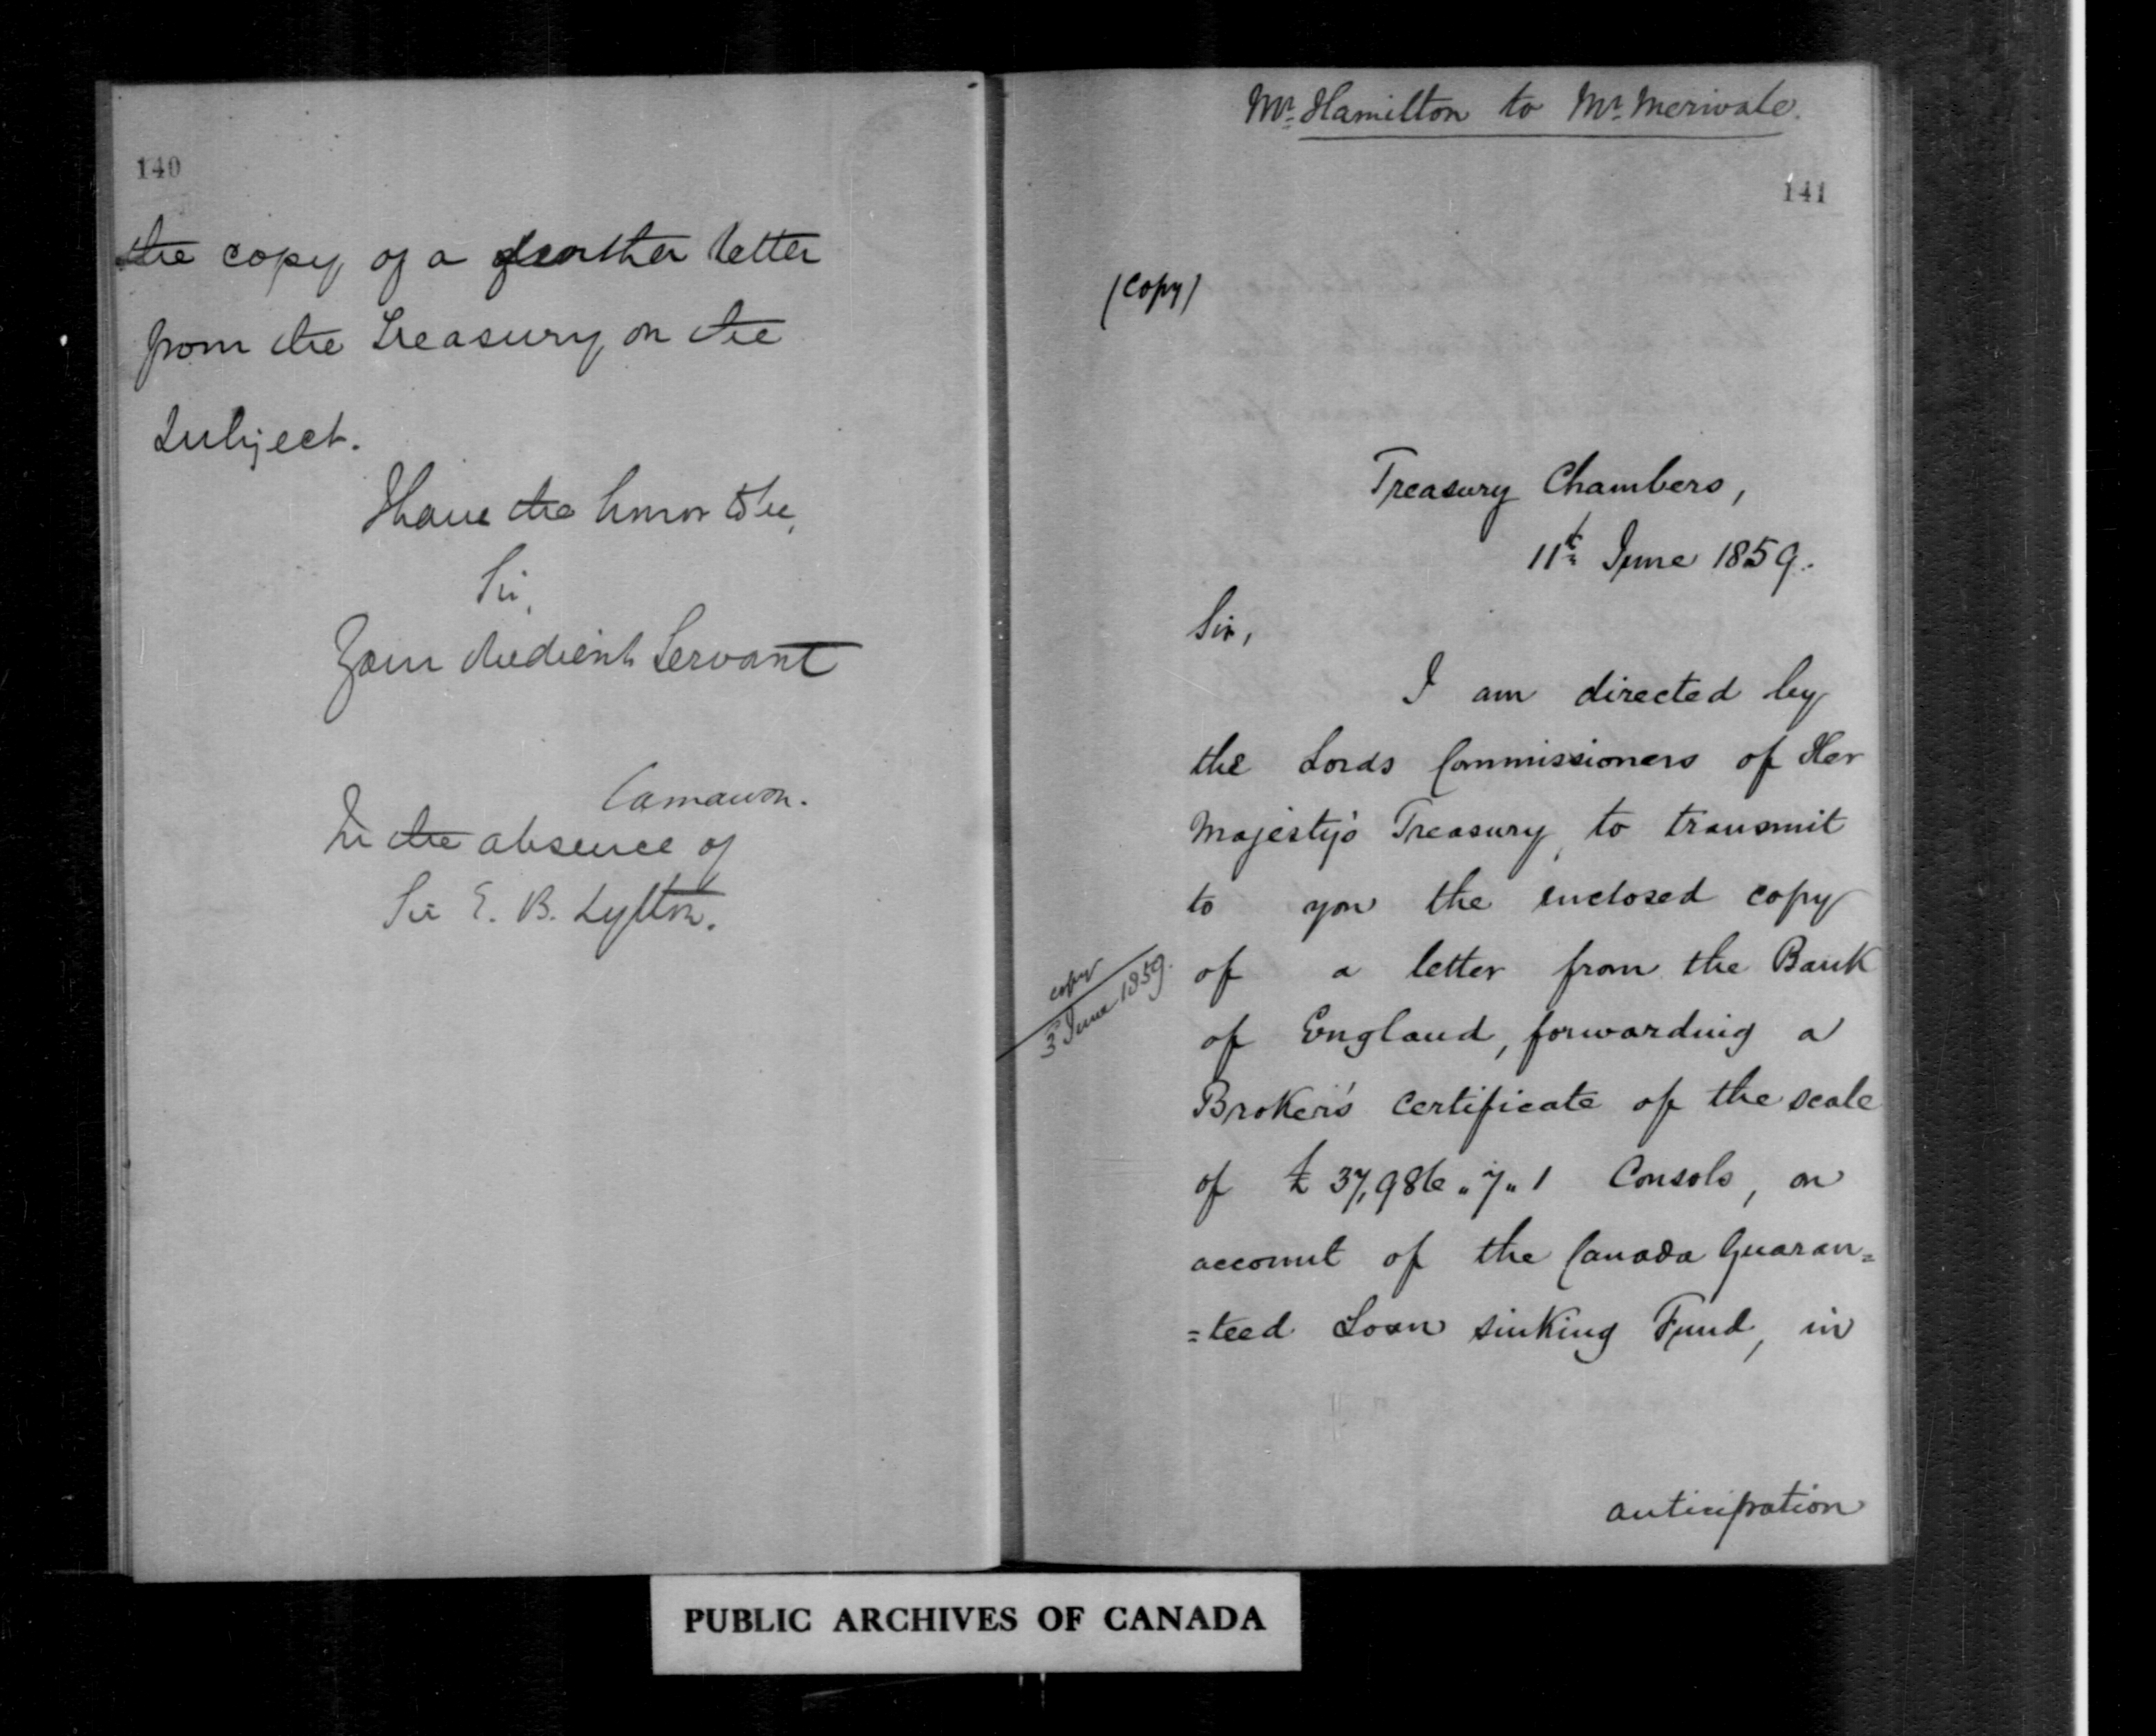 140
the copy of a further letter
from the Treasury on the
Subject.
I have the honor to be,
Sir,
Your obedient Servant
Carnarvon.
In the absence of
Sir E. B. Lytton.
Mr. Hamilton to Mr. Merivale.
141
(Copy)
Treasury Chambers,
11th June 1859.
Sir,
I am directed by
the Lords Commissioners of Her
Majesty's Treasury, to transmit
to you the enclosed copy
copy
3 June 1859.
of a letter from the Bank
of England, forwarding a
Broker's Certificate of the scale
of £37,986 " 7 " 1 Consols, on
account of the Canada Guaran=
=teed Loan sinking Fund, in
anticipation
PUBLIC ARCHIVES OF CANADA